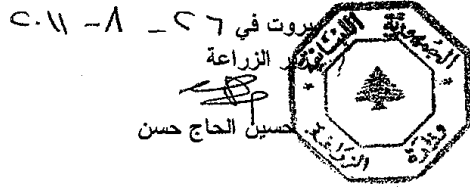 بيروت في ٢٦ - ٨ - ٢٠١١
وزير الزراعة
حسين الحاج حسن
الجمهورية اللبنانية
وزارة الزراعة